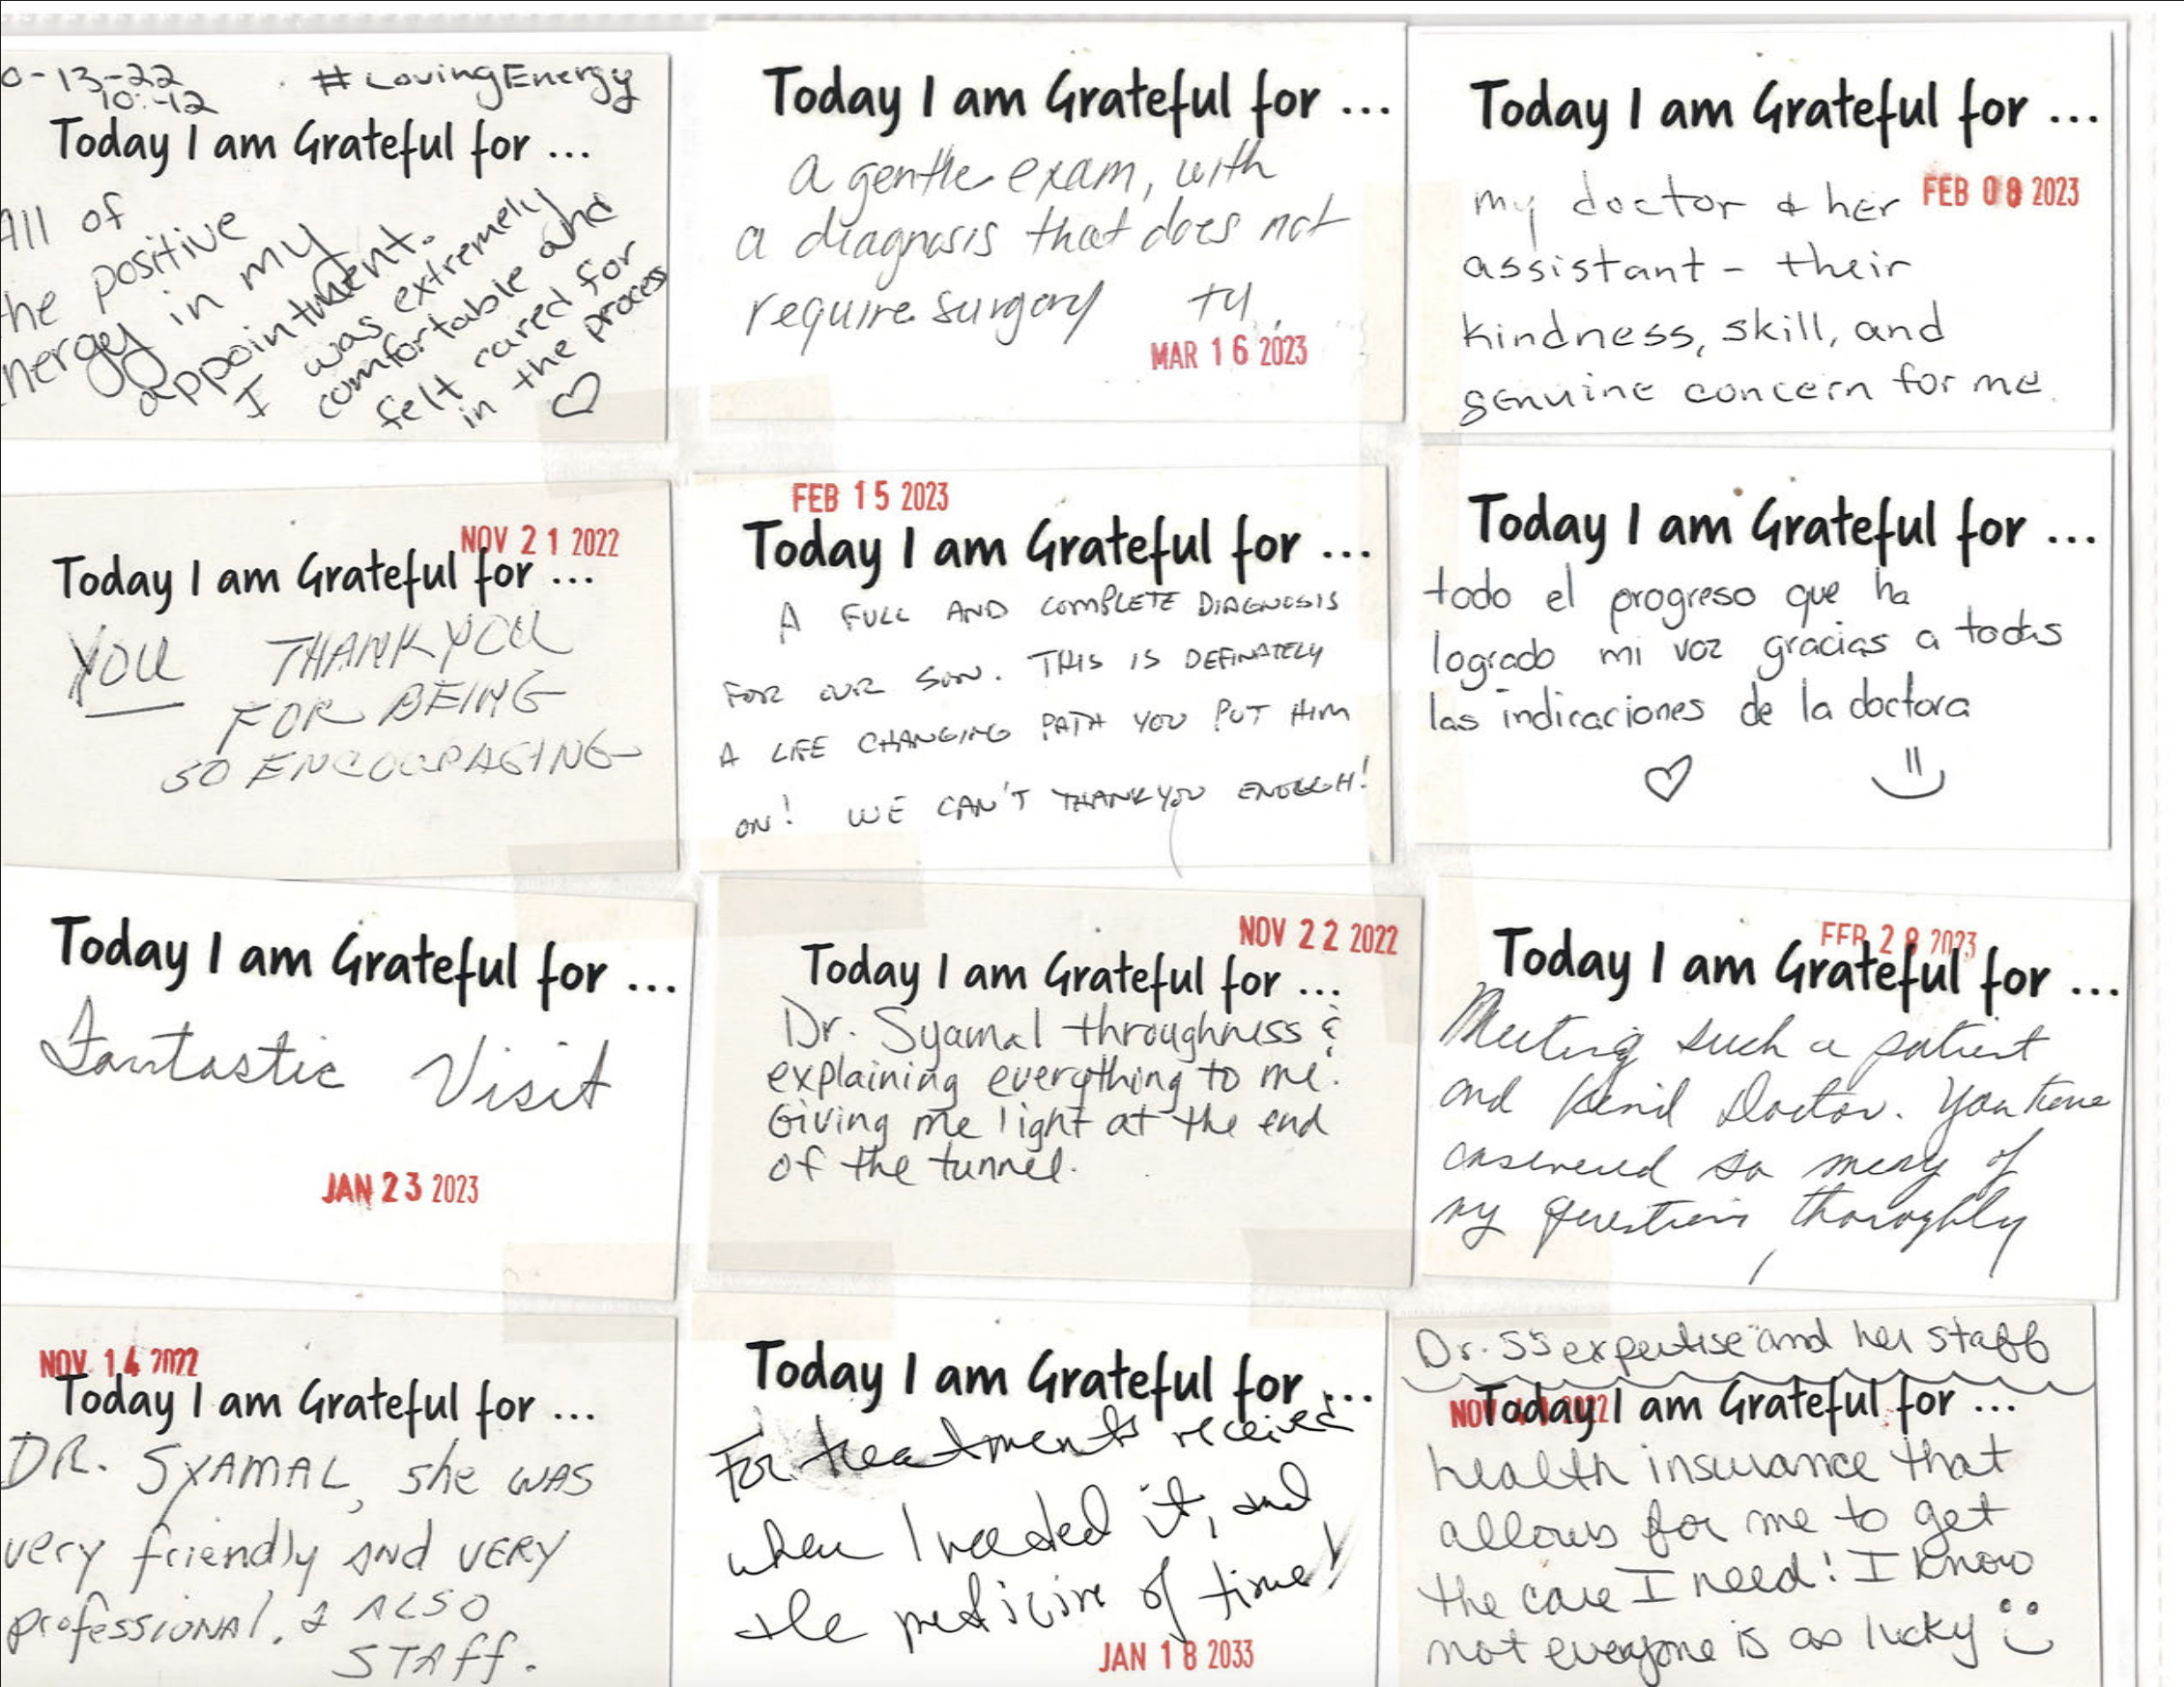 0-13-22
10:-12
#LovingEnergy
Today I am Grateful for ...
All of
the positive
energy in my
appointment.
I was extremely
comfortable and
felt cared for
in the process
Today I am Grateful for ...
a gentle exam, with
a diagnosis that does not
require surgery ty.
MAR 16 2023
Today I am Grateful for ...
FEB 08 2023
my doctor & her
assistant - their
kindness, skill, and
genuine concern for me.
NOV 21 2022
Today I am Grateful for ...
YOU THANK YOU
FOR BEING
SO ENCOURAGING
FEB 15 2023
Today I am Grateful for ...
A FULL AND COMPLETE DIAGNOSIS
FOR OUR SON. THIS IS DEFINATELY
A LIFE CHANGING PATH YOU PUT HIM
ON! WE CAN'T THANK YOU ENOUGH!
Today I am Grateful for ...
todo el progreso que ha
logrado mi voz gracias a todas
las indicaciones de la doctora
Today I am Grateful for ...
Fantastic Visit
JAN 23 2023
NOV 22 2022
Today I am Grateful for ...
Dr. Syamal throughness &
explaining everything to me.
Giving me light at the end
of the tunnel.
FEB 28 2023
Today I am Grateful for ...
Meeting such a patient
and kind Doctor. You have
answered so many of
my questions, thoroghly
NOV 14 2022
Today I am Grateful for ...
DR. SYAMAL, she WAS
very friendly AND VERY
professionAl. & ALSO
STAff.
Today I am Grateful for ...
For treatments received
when I needed it, and
the medicine of time!
JAN 18 2033
Dr. S's expertise and her staff
NOV 2022
Today I am Grateful for ...
health insurance that
allows for me to get
the care I need! I know
not everyone is as lucky